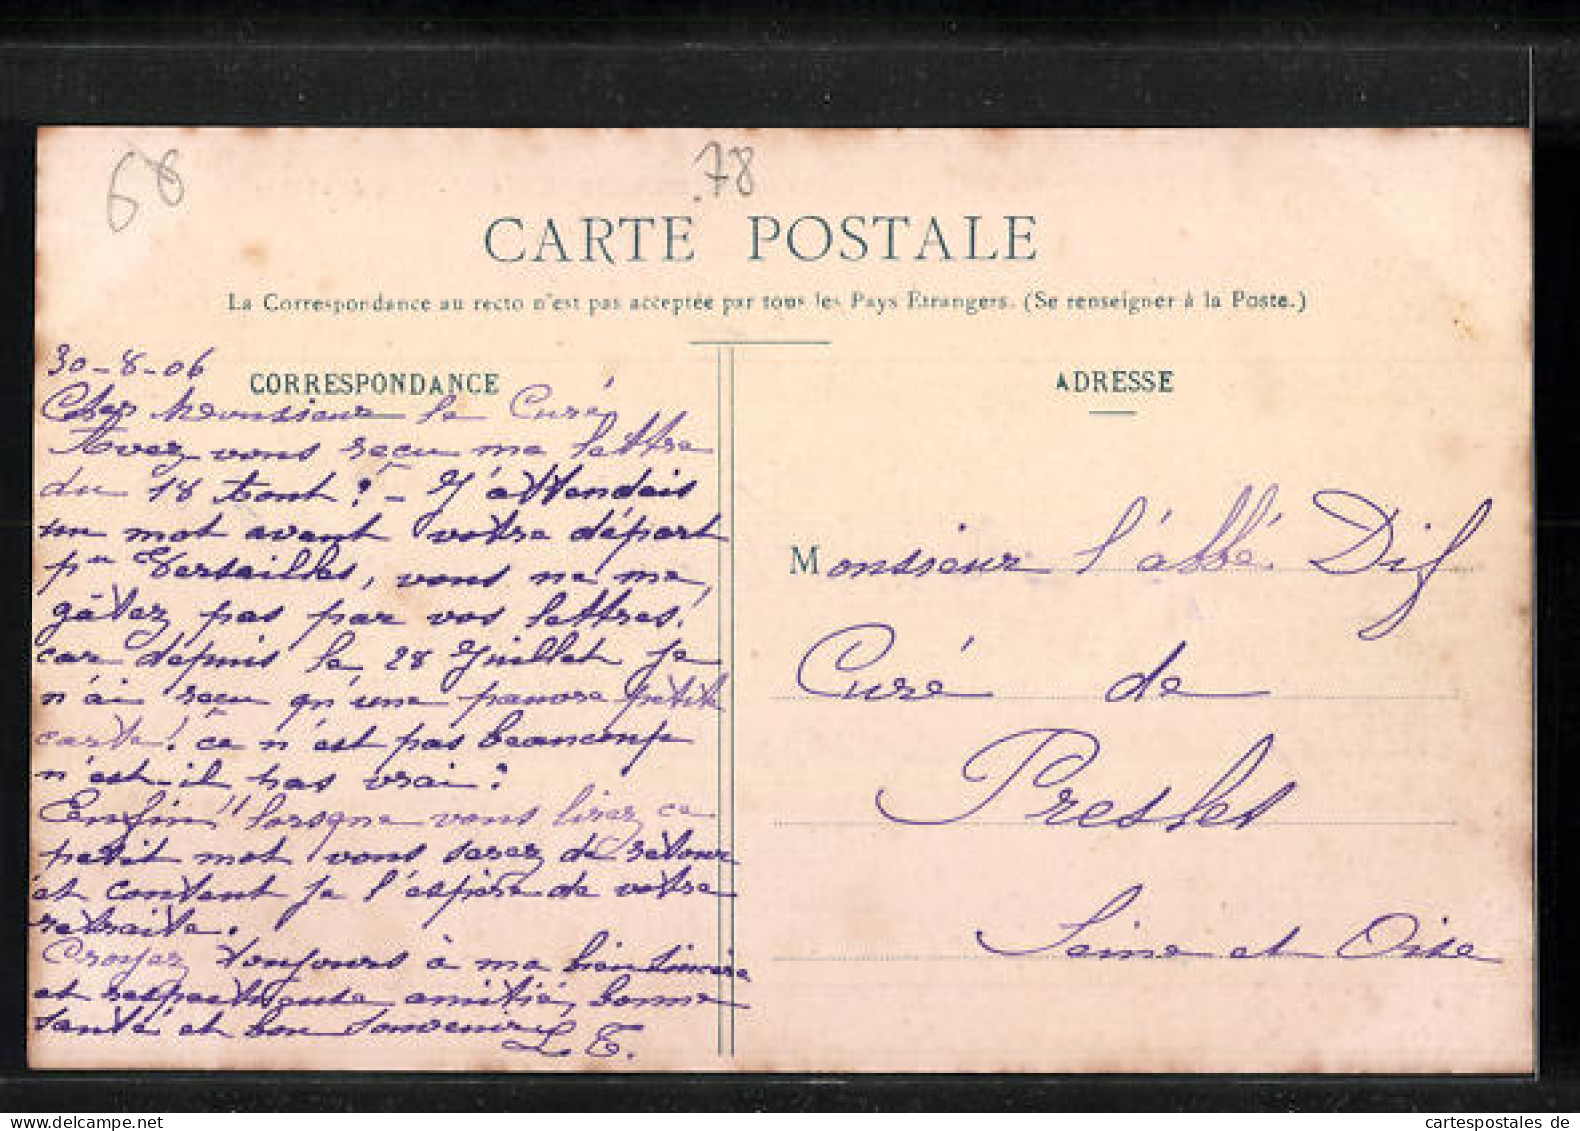 68
78
CARTE POSTALE
La Correspondance au recto n'est pas acceptée par tous les Pays Etrangers. (Se renseigner à la Poste.)
30-8-06
CORRESPONDANCE
Cher Monsieur le Curé
Avez vous reçu ma lettre
du 18 Aout? - J'attendais
un mot avant votre départ
pr Versailles, vous ne me
gâtez pas par vos lettres!
car depuis le 28 Juillet je
n'ai reçu qu'une pauvre petite
carte! ce n'est pas beaucoup
n'est-il pas vrai?
Enfin lorsque vous lirez ce
petit mot vous serez de retour
et content je l'espère de votre
retraite.
Croyez toujours à ma bien sincère
et respectueuse amitié, bonne
santé et bon souvenir
L T.
ADRESSE
Monsieur l'abbé
Curé de
Presles
Seine et Oise
cartespostales de